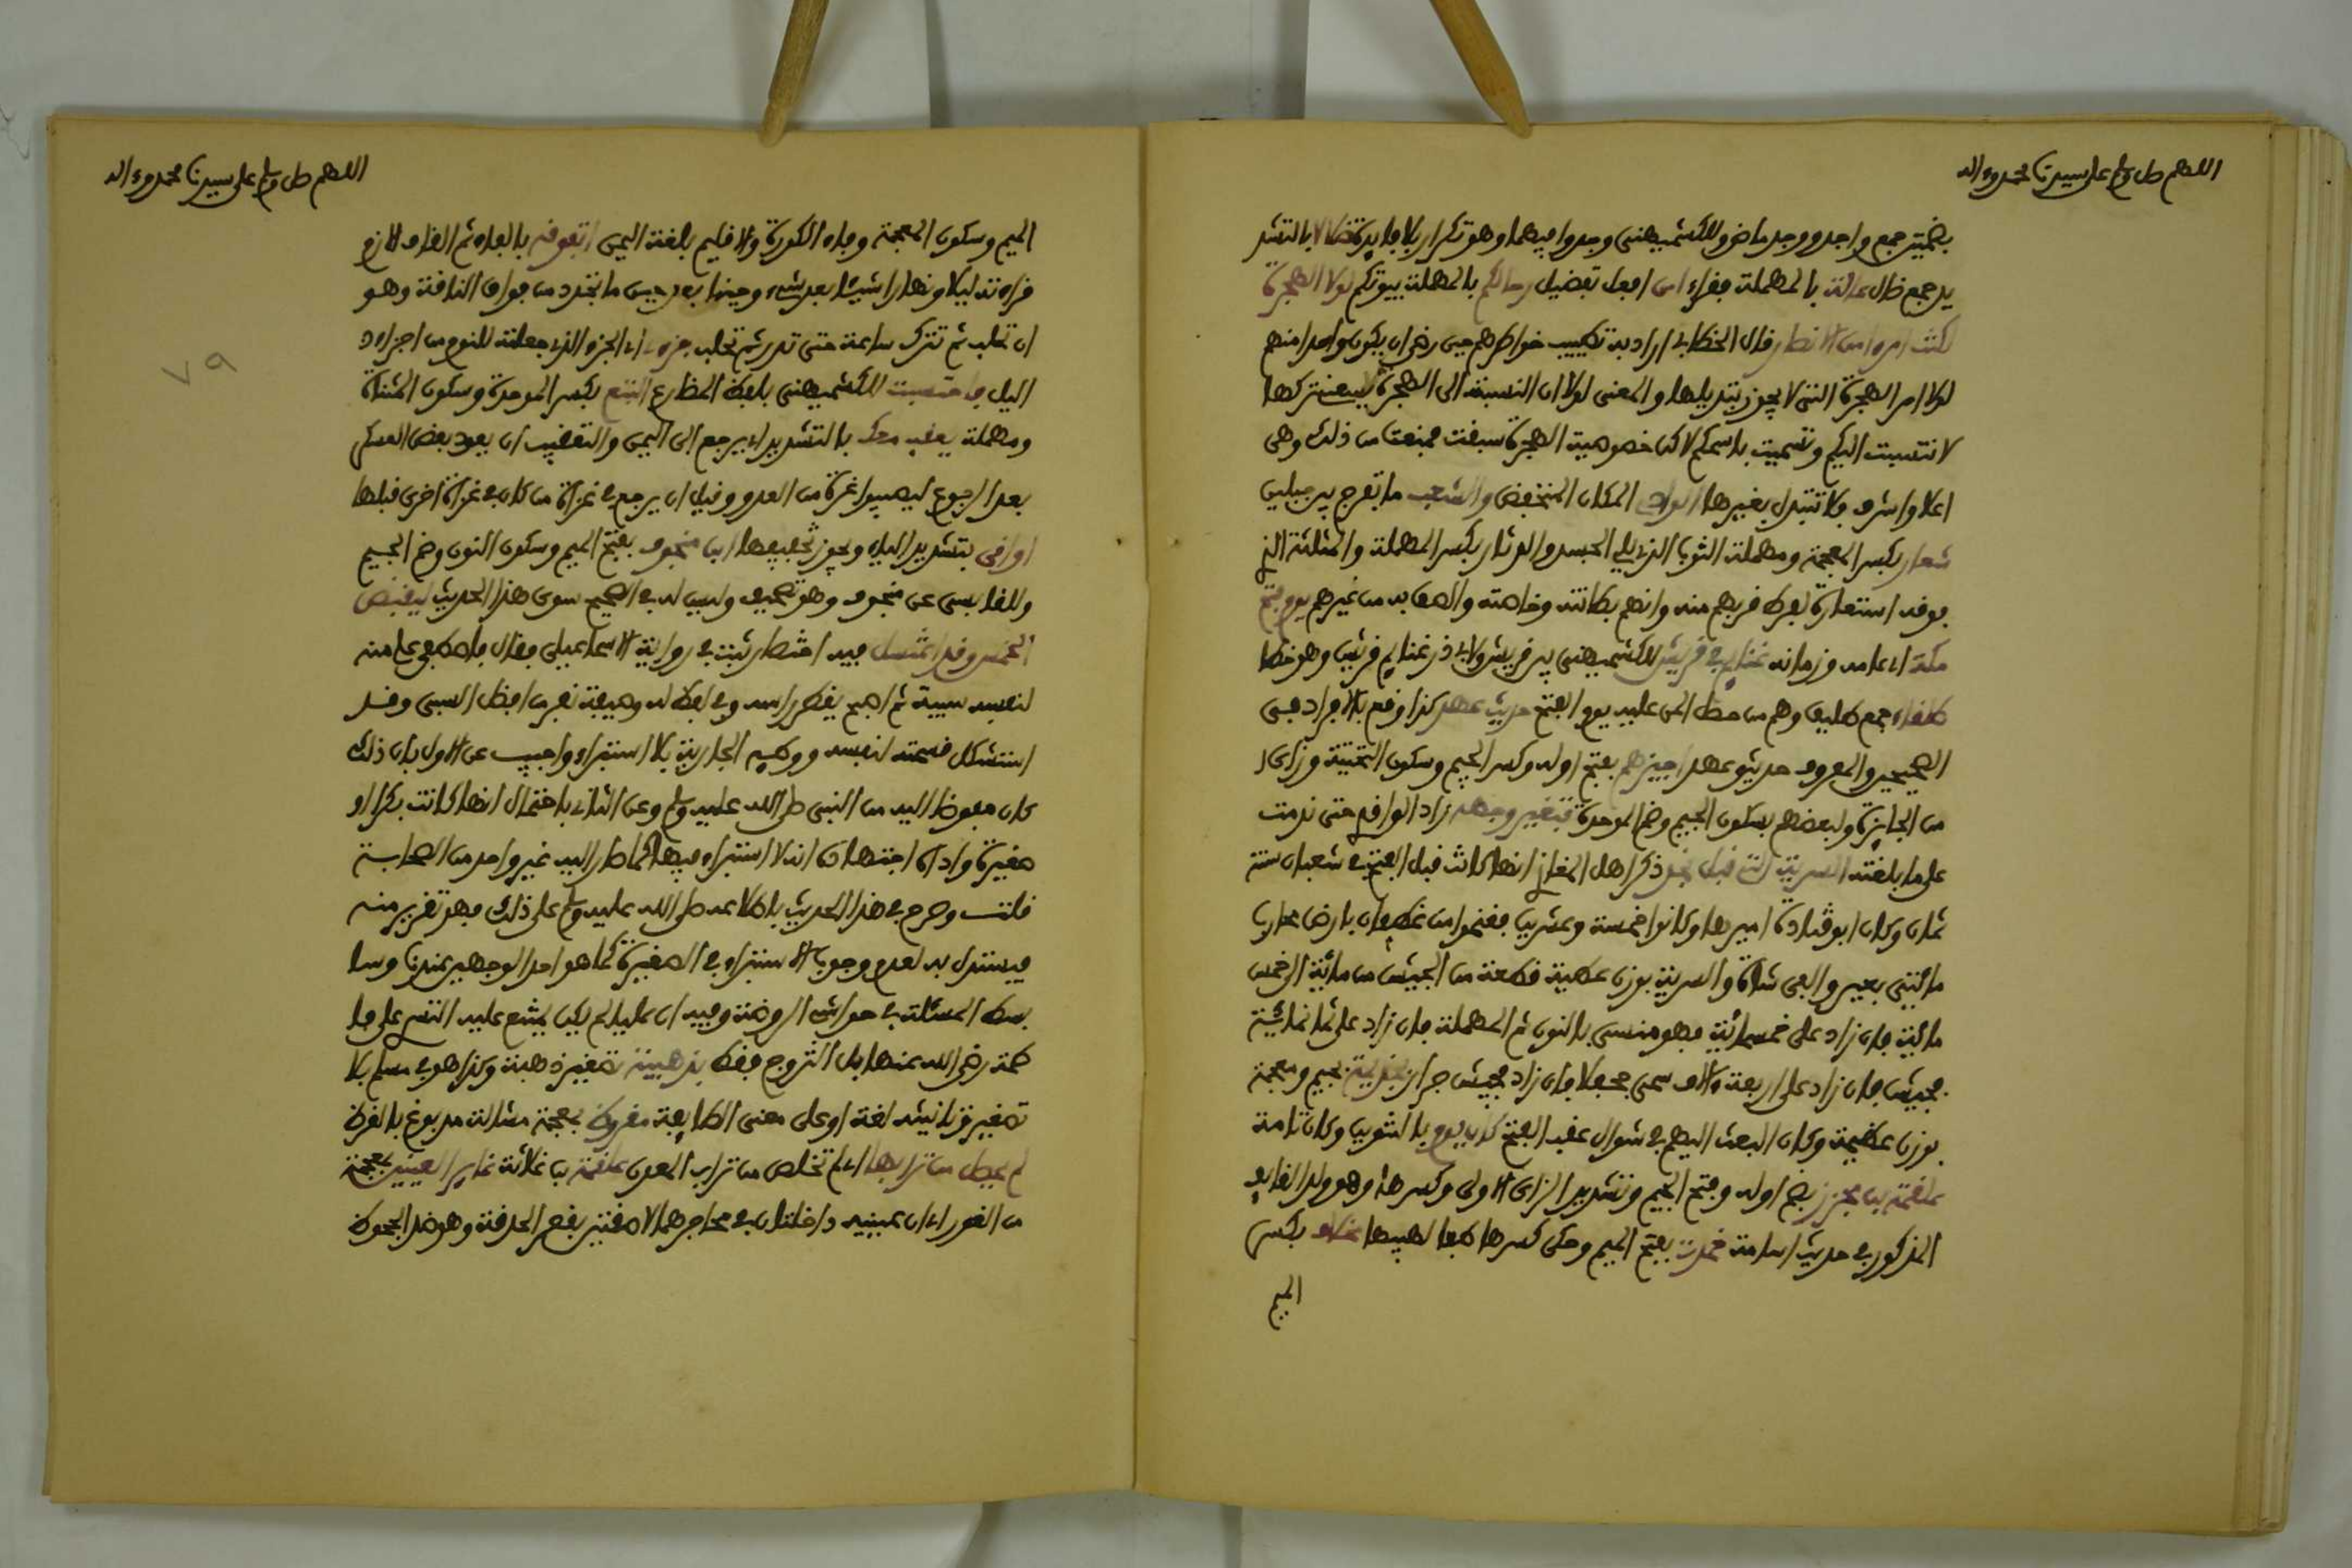 اللهم صل وسلم على سيدنا محمد وءاله
بضمتين جمع واجد ووجد ماض وللكشميهني وجدوا فيهما وهو تكرار بلا فايدة ضلالا بالتشد
يد جمع ضال عالة بالمهملة فقراء امن افعل تفضيل رحالكم بالمهملة بيوتكم لولا الهجرة
لكنت امرءا من الانصار قال الخطابي اراد به تطييب خواطرهم حين رضي ان يكون واحدا منهم
لولا امر الهجرة التي لا يجوز تبديلها والمعنى لولا ان النسبة الى الهجرة لا يسعني تركها
لانتسبت اليكم وتسميت باسمكم لاكن خصوصية الهجرة سبقت فمنعت من ذلك وهي
اعلا واشرف فلا تتبدل بغيرها الوادي المكان المنخفض والشعب ما تفرج بين جبلين
شعار بكسر المعجمة ومهملة الثوب الذي يلي الجسد والدثار بكسر المهملة والمثلثة الذي
فوقه استعارة لفرط قربهم منه وانهم بطانته وخاصته والصق به من غيرهم يوم فتح
مكة اي عامه وزمانه غنايم في قريش للكشميهني بين قريش ولابي ذر غنايم قريش وهو خطا
طلقاء جمع طليق وهم من حصل المن عليه يوم الفتح حديث عهد كذا وقع بالافراد في
الصحيحين والمعروف حديثو عهد اجيزهم بفتح اوله وكسر الجيم وسكون التحتية وزاي
من الجايزة ولبعضهم بسكون الجيم وضم الموحدة فتغير وجهه زاد الواقدي حتى ندمت
على ما بلغته السرية التي قبل نجد ذكر اهل المغازي انها كانت قبل الفتح في شعبان سنة
ثمان وكان ابو قتادة اميرها وكانوا خمسة وعشرين فغنموا من غطفان بارض محارب
مائتي بعير والفي شاة والسرية بوزن عطية قطعة من الجيش من مائة الى خمس
مائة فان زاد على خمسمائة فهو منسر بالنون ثم المهملة فان زاد على ثمانمائة
فجيش فان زاد على اربعة ءالاف سمي جحفلا فان زاد فجيش جرار بني جذيمة بجيم ومعجمة
بوزن عظيمة وكان البعث اليهم في شوال عقب الفتح كان يوم بالتنوين وكان تامة
علقمة بن مجزز بضم اوله وفتح الجيم وتشديد الزاي الاولى وكسرها وهو ولد القايف
المذكور في حديث اسامة خمدت بفتح الميم وحكي كسرها طفا لهيبها مخلاف بكسر
الميم
اللهم صل وسلم على سيدنا محمد وءاله
الميم وسكون المعجمة وفاء الكورة والاقليم بلغة اليمن اتفوقه بالفاء ثم القاف الازم
قراءته ليلا ونهارا شيئا بعد شيء وحينا بعد حين ما خوذ من فواق الناقة وهو
ان تحلب ثم تترك ساعة حتى تدر ثم تحلب جزءي اي الجزء الذي جعلته للنوم من اجزاء
اليل فاحتسبت للكشميهني بلفظ المضارع البتع بكسر الموحدة وسكون المثناة
ومهملة يعقب معك بالتشديد اي يرجع الى اليمن والتعقيب ان يعود بعض العسكر
بعد الرجوع ليصيبوا غرة من العدو وقيل ان يرجع في غزاة من كان في غزاة اخرى قبلها
اواقي بتشديد الياء ويجوز تخفيفها ابن منجوف بفتح الميم وسكون النون وضم الجيم
وللقابسي عن منجوف وهو تصحيف وليس له في الصحيح سوى هذا الحديث ليقبض
الخمس وقد اغتسل فيه اختصار ثبت في رواية الاسماعيلي فقال فاصطفى علي منه
لنفسه سبية ثم اصبح يقطر راسه وفي لفظ له وصيفة نفر من افضل السبي وقد
استشكل قسمته لنفسه ووطيه الجارية بلا استبراء واجيب عن الاول بان ذلك
كان مفوضا اليه من النبي صلى الله عليه وسلم وعن الثاني باحتمال انها كانت بكرا او
صغيرة واداه اجتهاده انه لا استبراء فيها كما صار اليه غير واحد من الصحابة
قلت وصرح في هذا الحديث باطلاعه صلى الله عليه وسلم على ذلك فهو تقرير منه
فيستدل به لعدم وجوب الاستبراء في الصغيرة كما هو احد الوجهين عندنا وسا
بسط المسئلة في حواشي الروضة وفيه ان عليا لم يكن يمتنع عليه التسري على فا
طمة رضي الله عنها بل التزوج فقط بذهيبة تصغير ذهبة وكذا هو في مسلم بلا
تصغير وتانيثه لغة او على معنى الطايفة مقروظ بمعجمة مشالة مدبوغ بالقرظ
لم تحصل من ترابها اي لم تخلص من تراب المعدن علقمة بن علاثة غاير العينين بمعجمة
من الغور اي ان عينيه داخلتان في محاجرهما لاصقتين بقعر الحدقة وهو ضد الجحوظ
٧٩